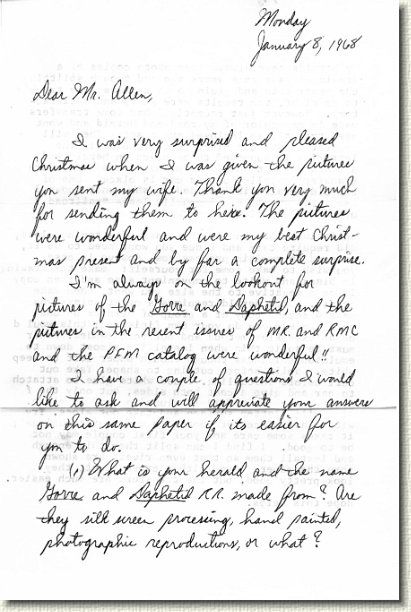 Monday
January 8, 1968
Dear Mr. Allen,
I was very surprised and pleased
Christmas when I was given the pictures
you sent my wife. Thank you very much
for sending them to her. The pictures
were wonderful and were my best Christ-
mas present and by far a complete surprise.
I'm always on the lookout for
pictures of the Gorre and Daphetid, and the
pictures in the recent issues of MR and RMC
and the PFM catalog were wonderful!!
I have a couple of questions I would
like to ask and will appreciate your answers
on this same paper if its easier for
you to do.
(1) What is your herald and the name
Gorre and Daphetid R.R. made from? Are
they silk screen processing, hand painted,
photographic reproductions, or what?